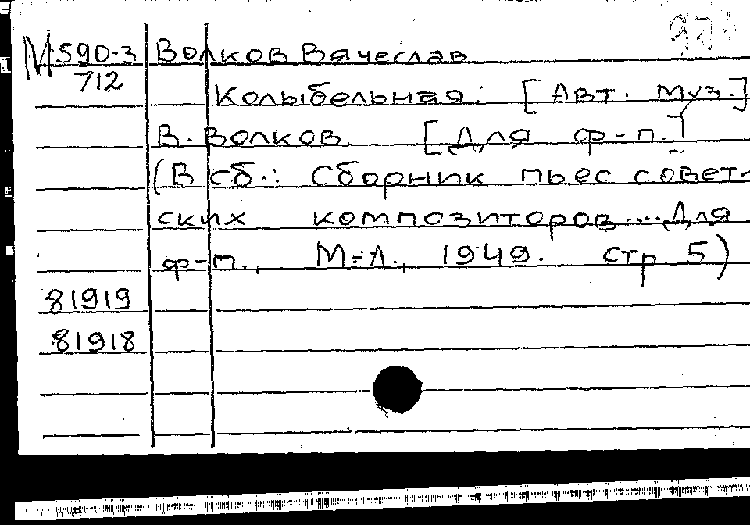 М590-3 Волков Вячеслав
712 Колыбельная. [Авт. муз.]
В. Волков [Для ф-п.]
(В сб.: Сборник пьес совет-
ских композиторов....Для
ф-п., М-Л., 1949. стр 5)
81919
81918